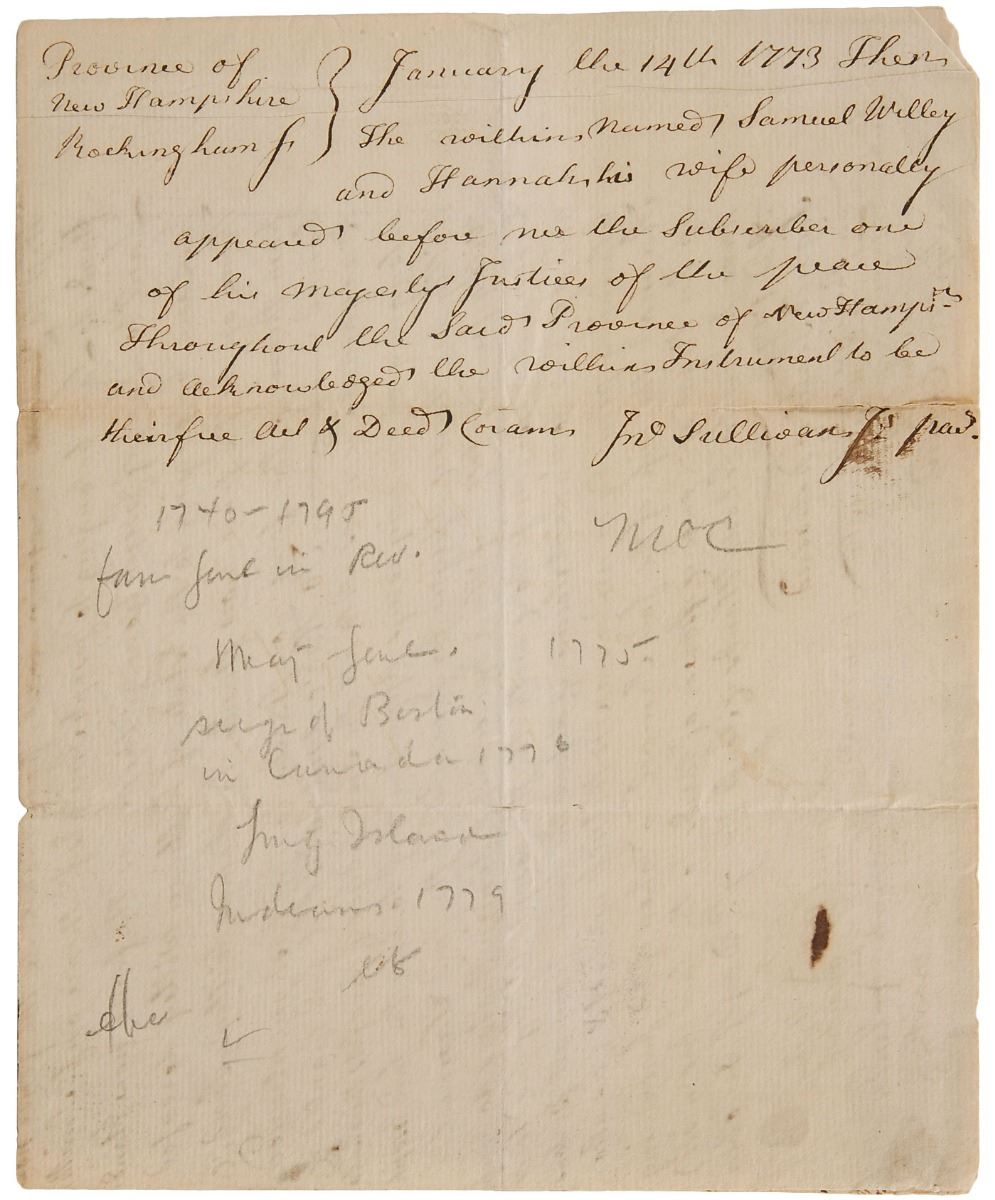 Province of
New Hampshire
Rockingham ss
January the 14th 1773 Then
The within Named Samuel Willey
and Hannah his wife personally
appeared before me the Subscriber one
of his Majestys Justices of the peace
Throughout the Said Province of New Hampsr
and acknowledged the within Instrument to be
their free Act & Deed Coram Jno Sullivan Js pac.
1740-1795
MOC
fam Genl in Rev.
Maj Genl. 1775
siege of Boston
in Canada 1776
Long Island
Indians 1779